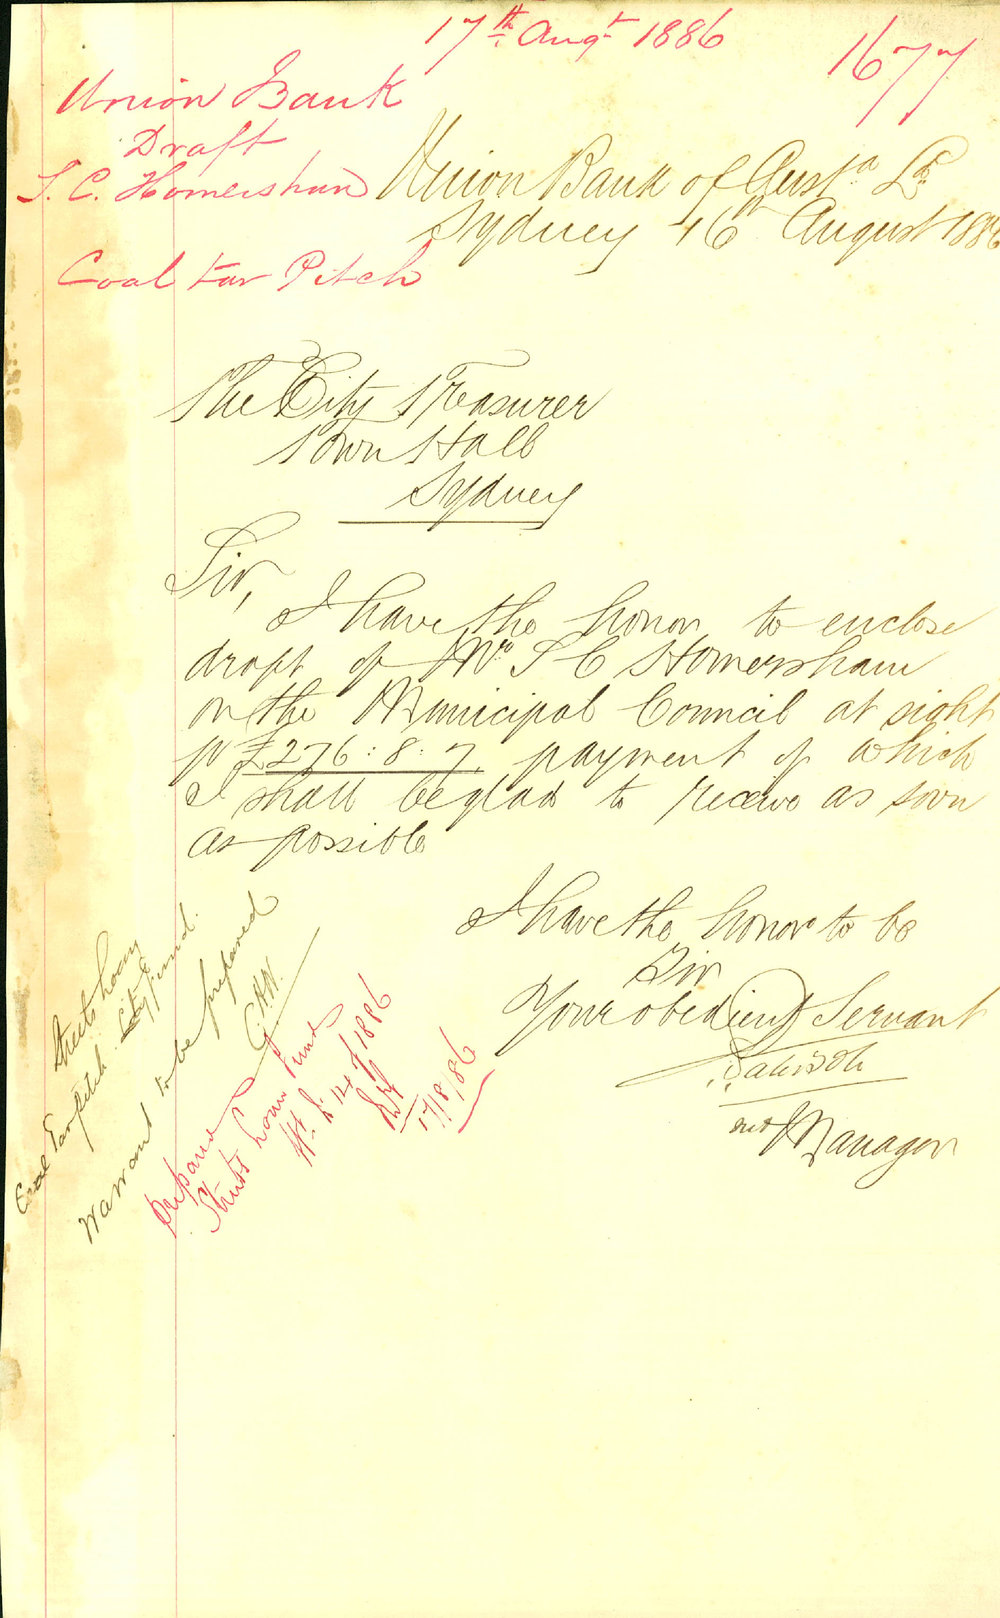 17th Augt 1886
1677
Union Bank
Draft
S. C. Homersham
Coal Tar Pitch
Union Bank of Austa Ld
Sydney 16th August 1886
The City Treasurer
Town Hall
Sydney
Sir,
I have the honor to enclose
draft of Mr S C Homersham
on the Municipal Council at sight
for £276:8:7, payment of which
I shall be glad to receive as soon
as possible
I have the honor to be
Sir
Your obedient Servant
Manager
Streets Loan
Coal Tar pitch City fund.
Warrant to be prepared
G.H.W.
Prepared
Streets Loan Fund
of 1886
17/8/86